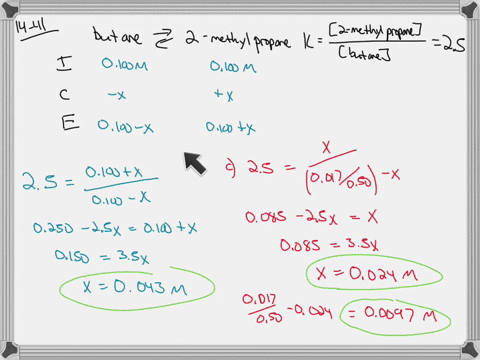 14-41
butane ⇌ 2-methylpropane K = [2-methylpropane] / [butane] = 2.5
I 0.100M 0.100M
C -x +x
E 0.100-x 0.100+x
2.5 = 0.100+x / 0.100-x
0.250 - 2.5x = 0.100 + x
0.150 = 3.5x
x = 0.043 M
c) 2.5 = x / (0.017/0.50) - x
0.085 - 2.5x = x
0.085 = 3.5x
x = 0.024 M
0.017/0.50 - 0.024 = 0.0097 M